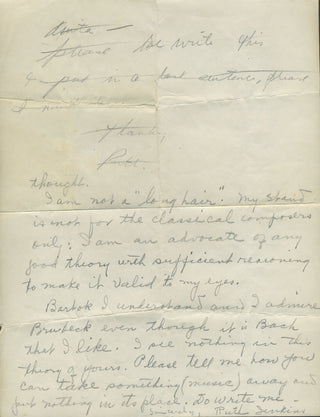 Anita —
please re write this
& put in a last sentence, please
I
Thanks,
Ruth.
thought.
I am not a "long hair". My stand
is not for the classical composers
only; I am an advocate of any
good theory with sufficient reasoning
to make it valid to my eyes.
Bartok I understand and I admire
Brubeck even though it is Bach
that I like. I see nothing in this
theory of yours. Please tell me how you
can take something (music) away and
put nothing in its place. do write me —
Sincerely, Ruth Jenkins